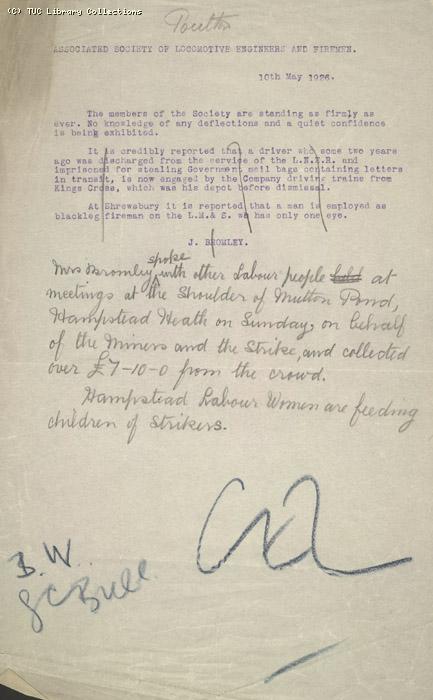 (C) TUC Library Collections
ASSOCIATED SOCIETY OF LOCOMOTIVE ENGINEERS AND FIREMEN.
10th May 1926.
The members of the Society are standing as firmly as
ever. No knowledge of any deflections and a quiet confidence
is being exhibited.
It is credibly reported that a driver who some two years
ago was discharged from the service of the L.N.E.R. and
imprisoned for stealing Government mail bags containing letters
in transit, is now engaged by the Company driving trains from
Kings Cross, which was his depot before dismissal.
At Shrewsbury it is reported that a man is employed as
blackleg fireman on the L.M.& S. who has only one eye.
J. BROMLEY.
spoke
Mrs Bromley with other Labour people held at
meetings at the Shoulder of Mutton Pond,
Hampstead Heath on Sunday, on behalf
of the Miners and the Strike, and collected
over £7-10-0 from the crowd.
Hampstead Labour Women are feeding
children of Strikers.
B.W.